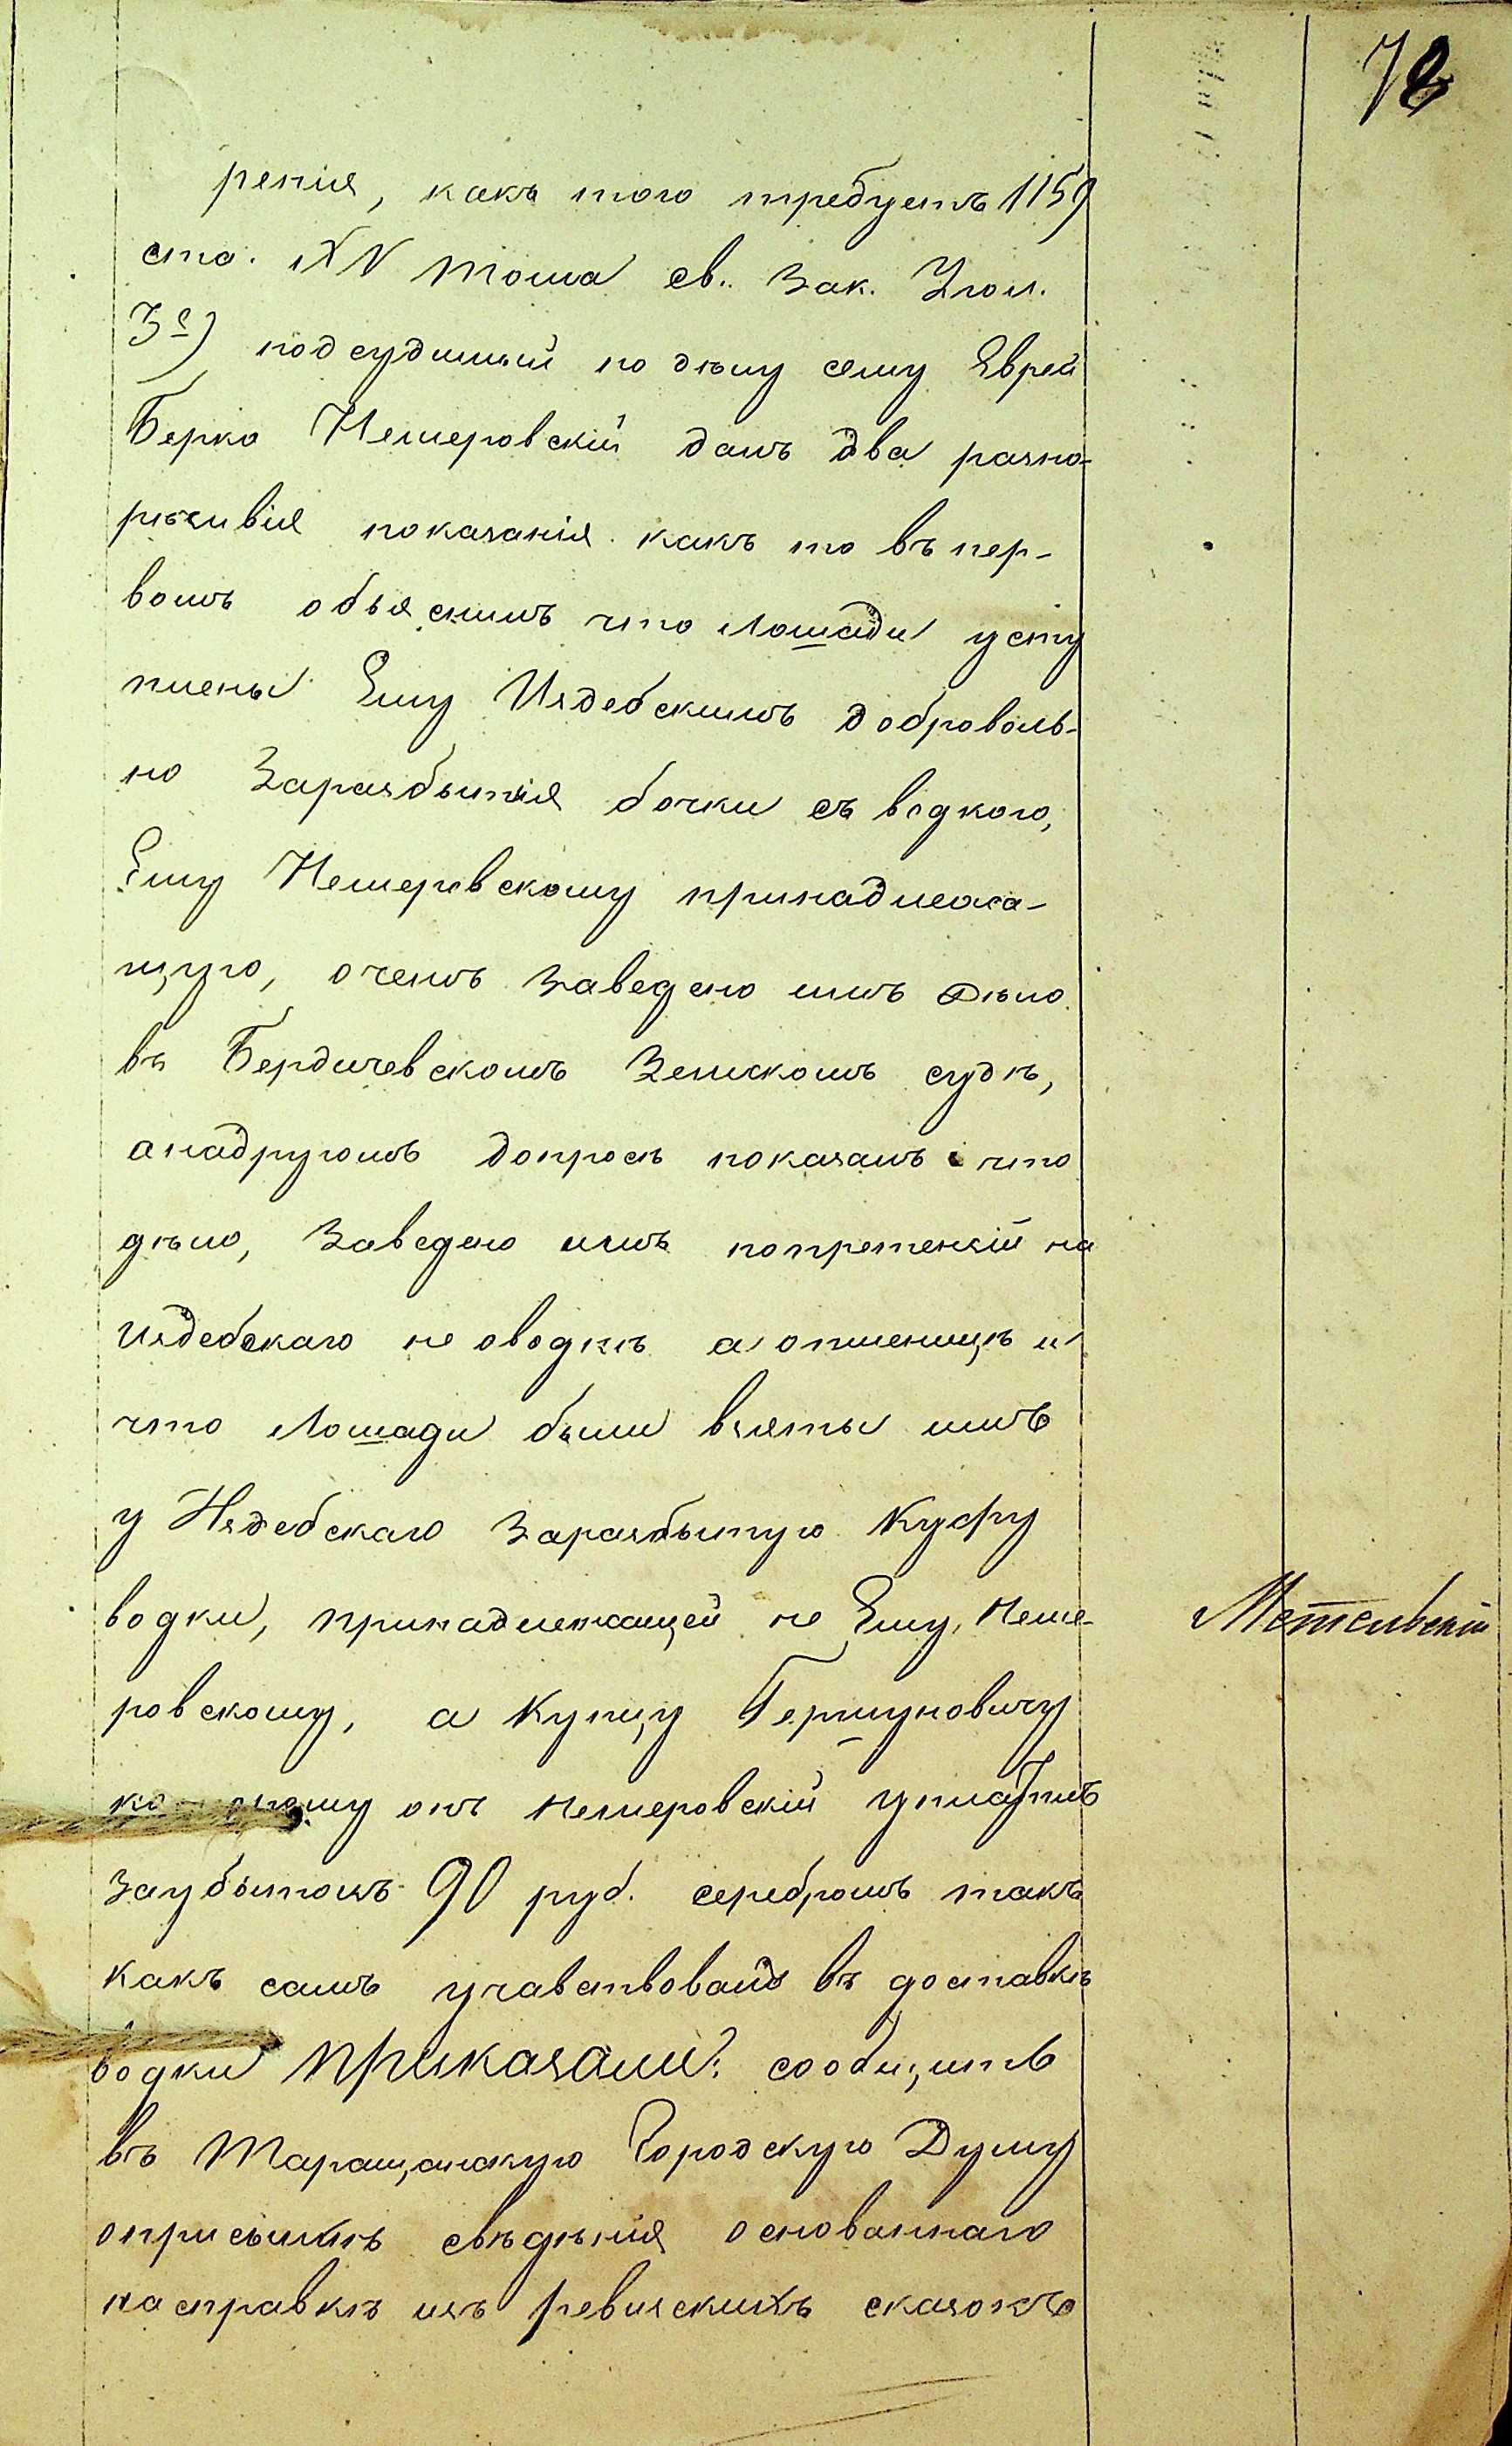 78
ренія, какъ того требуетъ 1159
ст. XV тома св. Зак. Угол.
3е) подсудимый по дѣлу сему Еврей
Берко Немеровскій далъ два разно-
рѣчивія показанія какъ то въ пер-
вомъ объяснилъ что лошади усту
плены Ему Издебскимъ доброволь-
но Заразбытія бочки съ водкою,
Ему Немеровскому принадлежа-
щую, очемъ Заведено имъ дѣло
въ Бердичевскомъ Земскомъ судѣ,
анадругомъ допросѣ показалъ что
дѣло, Заведено имъ попретензій на
Издебскаго не оводкѣ а опшеницѣ и
что Лошади были взяты имъ
у Издебскаго Заразбытую Куфу
водки, принадлежащей не Ему, Неме-
ровскому, а Купцу Гершуновичу
которому онъ Немеровскій уплатилъ
заубытокъ 90 руб. серебромъ такъ
какъ самъ учавствовалъ въ доставкѣ
водки Приказали: сообщить
въ Таращанскую Городскую Думу
оприсылкѣ свѣдѣнія основаннаго
насправкѣ изъ ревизскихъ сказокъ
Метельскій